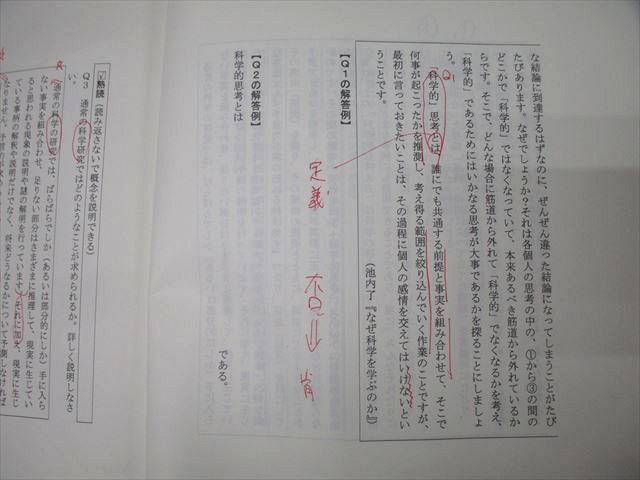 な結論に到達するはずなのに、ぜんぜん違った結論になってしまうことがたび
たびあります。なぜでしょうか?それは各個人の思考の中の、①から③の間の
どこかで「科学的」ではなくなっていて、本来あるべき筋道から外れているか
らです。そこで、どんな場合に筋道から外れて「科学的」でなくなるかを考え、
「科学的」であるためにはいかなる思考が大事であるかを探ることにしましょ
う。
Q1
「科学的」思考とは、誰にでも共通する前提と事実を組み合わせて、そこで
何事が起こったかを推測し、考え得る範囲を絞り込んでいく作業のことですが、
最初に言っておきたいことは、その過程に個人の感情を交えてはいけないとい
うことです。
(池内了『なぜ科学を学ぶのか』)
【Q1の解答例】
定義
否
肯
【Q2の解答例】
科学的思考とは
である。
☑熟読(読み返さないで概念を説明できる)
Q3 通常の科学研究ではどのようなことが求められるか。詳しく説明しなさ
い。
通常の科学の研究では、ばらばらでしか(あるいは部分的にしか)手に入ら
ない事実を組み合わせ、足りない部分はさまざまに推理して、現実に生じてい
ると思われる現象の説明や謎の解明を行っています。それに加え、現実に生じ
ている事柄の解釈や説明だけでなく、将来どうなるかについて予測しなければ
なりません。